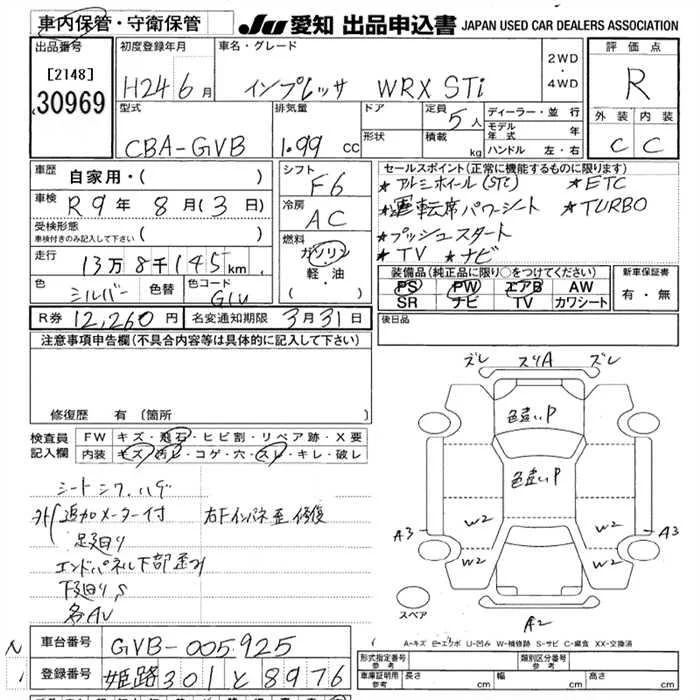 車内保管・守衛保管
JU 愛知 出品申込書 JAPAN USED CAR DEALERS ASSOCIATION
出品番号
[2148]
30969
初度登録年月
H24 6月
車名・グレード
インプレッサ WRX STi
2WD
・
4WD
評価点
R
外装 内装
C C
型式
CBA-GVB
排気量
1.99 cc
ドア
形状
定員 5人
積載 kg
ディーラー・並行
モデル年式 年
ハンドル 左・右
車歴
自家用・( )
車検 R9年 8月(3日)
受検形態
車検付きのみ記入して下さい ( )
走行 13万8千145km
色 シルバー 色替 色コード G1U
シフト
F6
冷房
AC
燃料
ガソリン
軽・油
セールスポイント(正常に機能するものに限ります)
★アルミホイール(STi) ★ETC
★運転席パワーシート ★TURBO
★プッシュスタート
★TV ★ナビ
装備品(純正品に限り○をつけてください)
PS PW エアB AW
SR ナビ TV カワシート
新車保証書
有・無
R券 12,260円 名変通知期限 3月31日
後日品
注意事項申告欄(不具合内容等は具体的に記入して下さい)
修復歴 有(箇所 )
検査員記入欄
FW キズ・飛石・ヒビ割・リペア跡・X要
内装 キズ・汚レ・コゲ・穴・スレ・キレ・破レ
シートシワ、ハゲ
外 追加メーター付 右Fインパネ歪修復
足廻り
エンドパネル下部歪み
下廻りS
各AU
ズレ スリA ズレ
色違いP
色違いP
A3 W2 W2 A3
W2 W2
A2
スペア
A-キズ E-エクボ U-凹み W-補修跡 S-サビ C-腐食 XX-交換済
車台番号 GVB-005925
登録番号 姫路301と8976
形式指定番号 参考
類別区分番号 参考
車庫証明用 参考 長さ cm 幅 cm 高さ cm